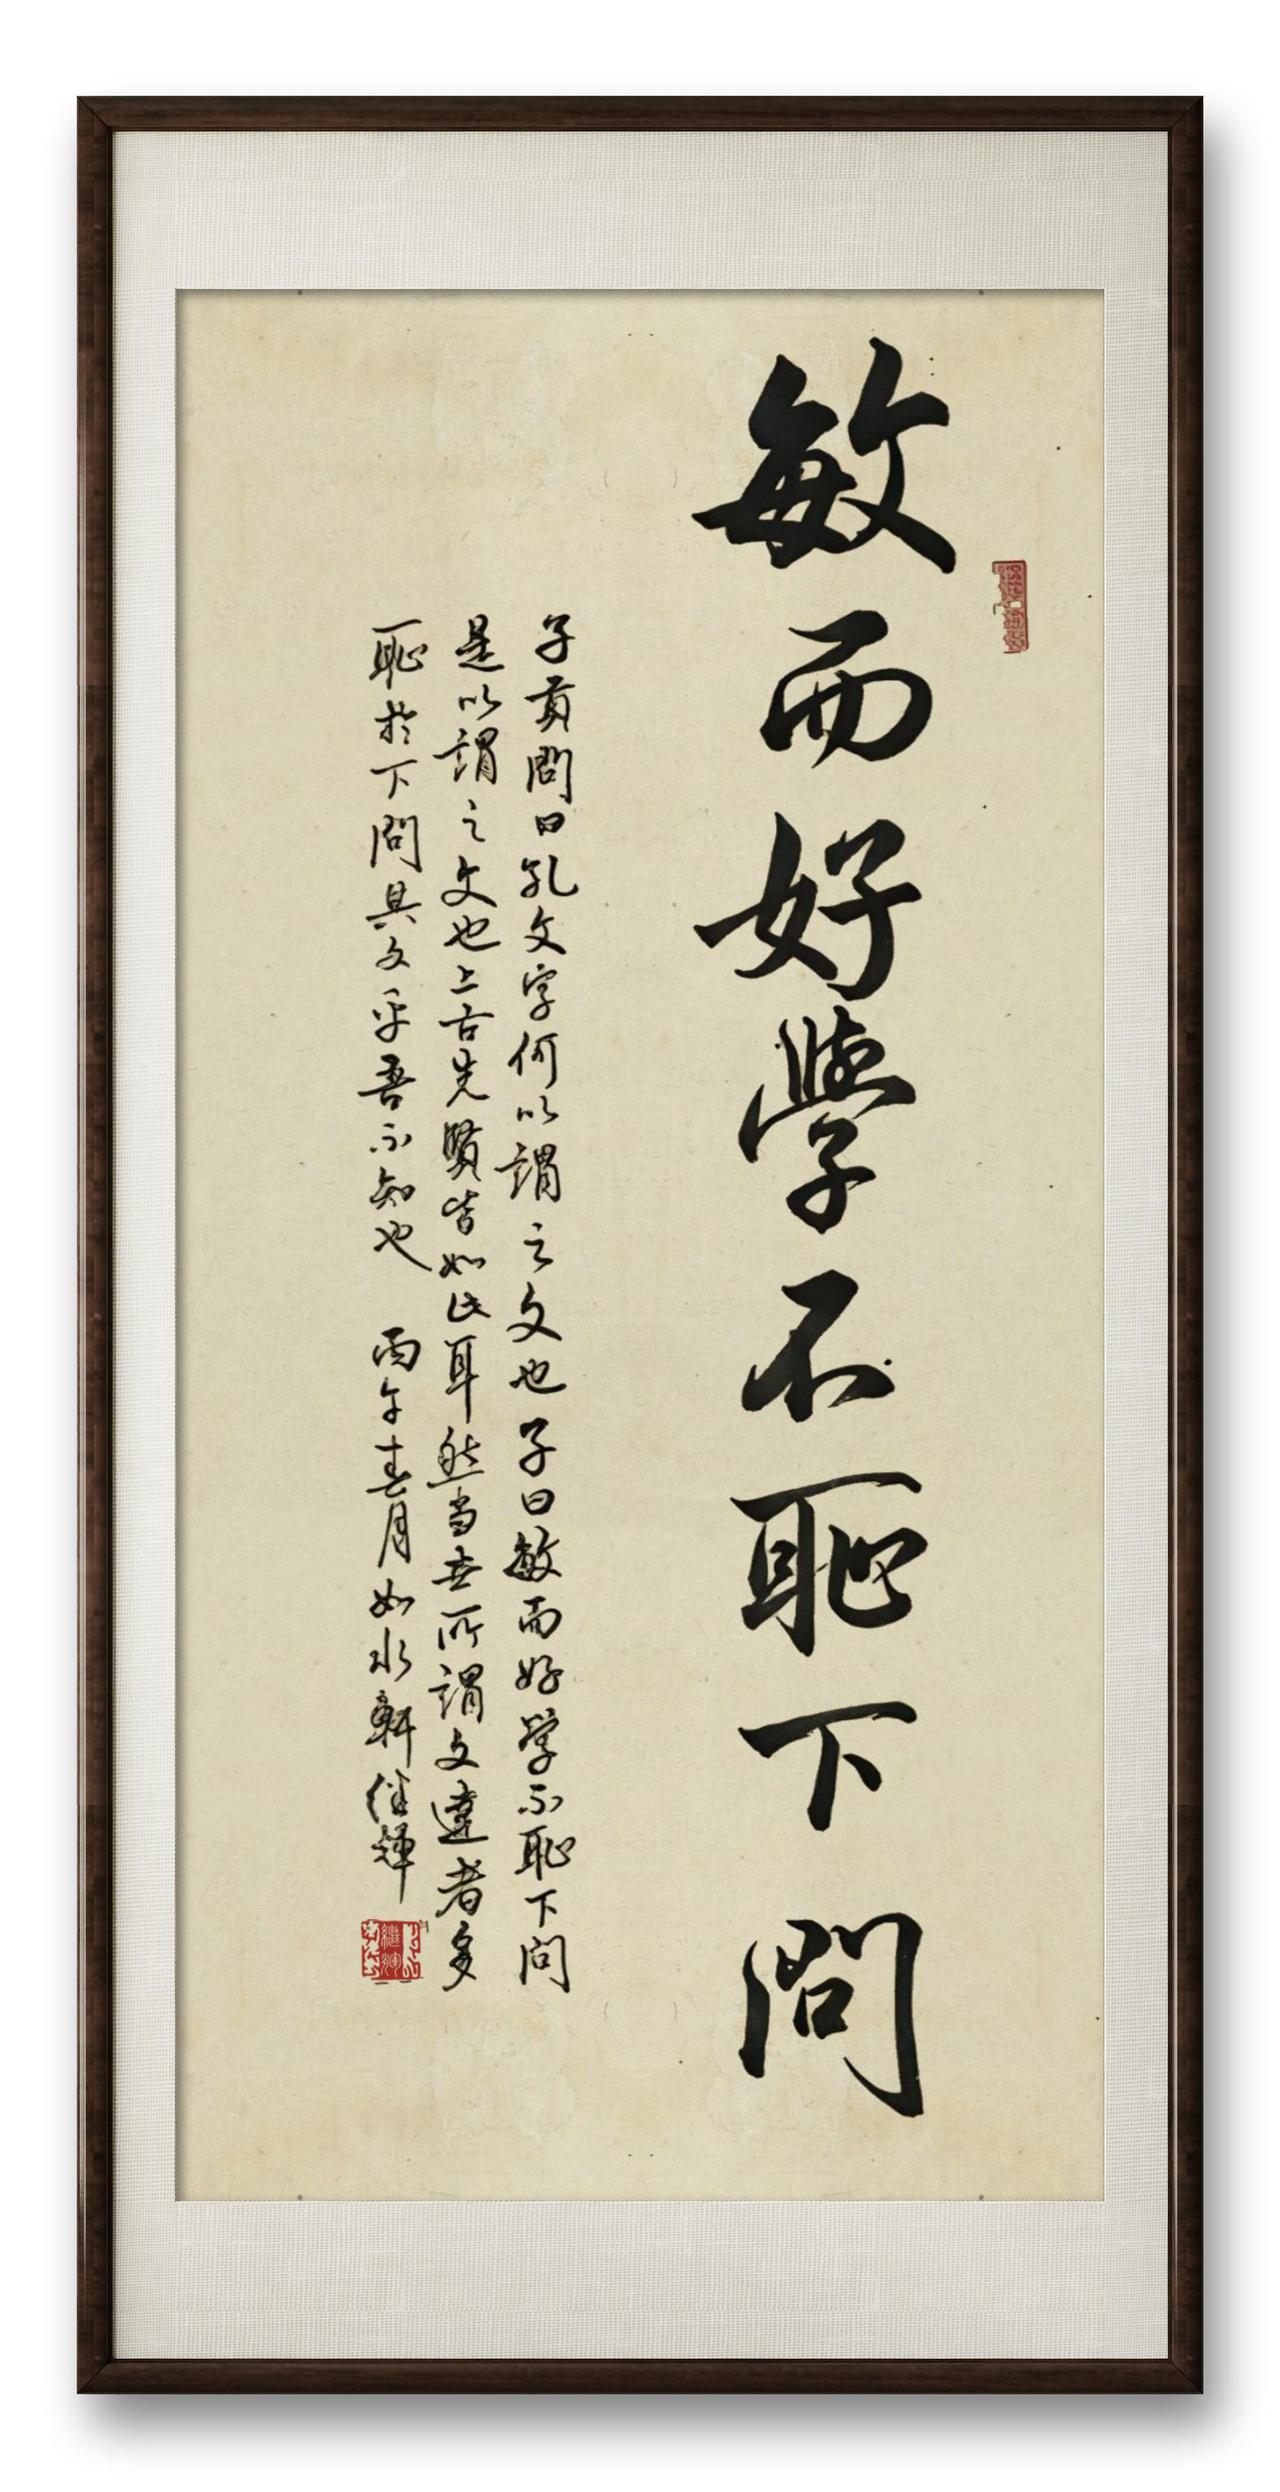 敏而好學不恥下問
子貢問曰孔文字何以謂之文也子曰敏而好学不恥下问
是以謂之文也上古先賢皆如此耳然当世所謂文達者多
恥於下問其文乎吾不知也 丙午春月如水軒继輝